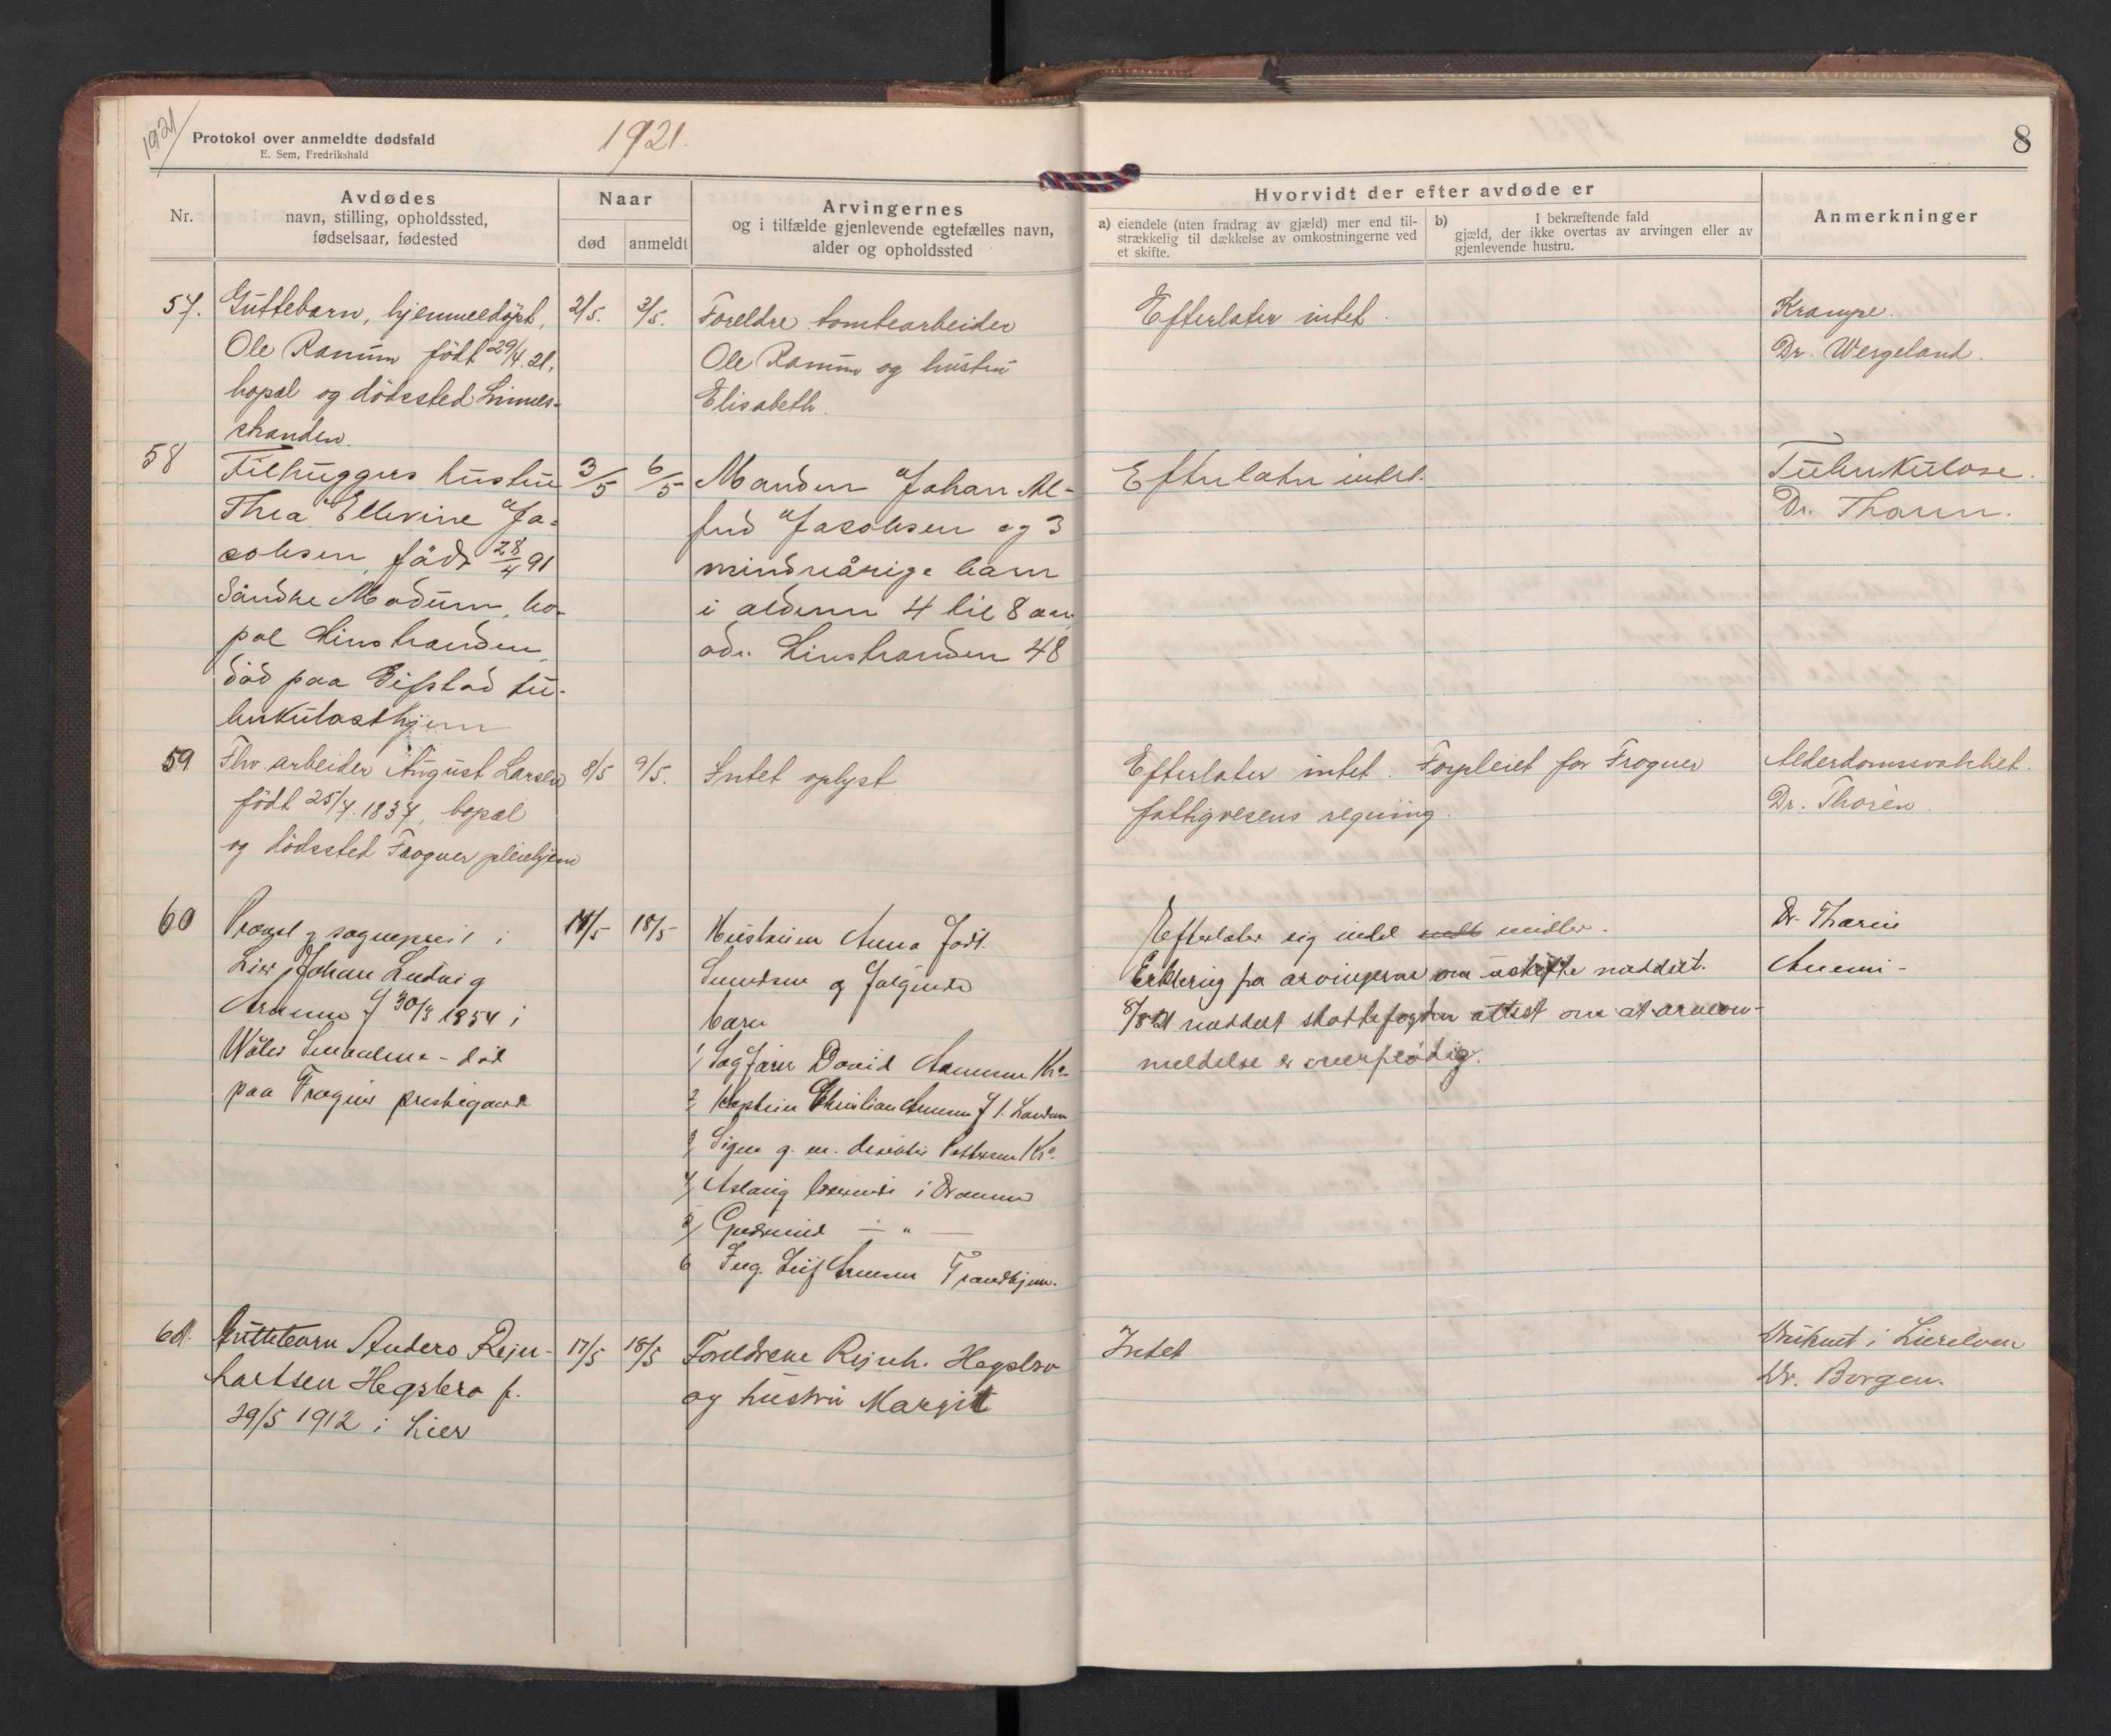 1921
Protokol over anmeldte dødsfald
E. Sem, Fredrikshald
1921.
8
Nr.
Avdødes
navn, stilling, opholdssted,
fødselsaar, fødested
Naar
død
anmeldt
Arvingernes
og i tilfælde gjenlevende egtefælles navn,
alder og opholdssted
Hvorvidt der efter avdøde er
a) eiendele (uten fradrag av gjæld) mer end til-
strækkelig til dækkelse av omkostningerne ved
et skifte.
b) I bekræftende fald
gjæld, der ikke overtas av arvingen eller av
gjenlevende hustru.
Anmerkninger
57.
Guttebarn, hjemmedöpt,
Ole Ranum födt 29/4.21,
bopæl og dödssted Linnes-
stranden.
2/5.
3/5.
Foreldre tomtearbeider
Ole Ranum og hustru
Elisabeth.
Efterlater intet.
Krampe.
Dr. Wergeland.
58
Filhuggers hustru
Thea Ellevine Ja-
cobsen, född 28/4 91
Söndre Modum, bo-
pæl Linstranden,
död paa Gifstad tu-
berkulosehjem
3/5
6/5
Manden Johan Al-
fred Jacobsen og 3
mindreårige barn
i alderen 4 til 8 aar
adr. Linstranden 48
Efterlater intet.
Tuberkulose.
Dr. Thorén.
59
Fhv. arbeider August Larsen
födt 25/7.1837, bopæl
og dödssted Frogner pleiehjem
8/5
9/5.
Intet oplyst
Efterlater intet. Forpleiet for Frogner
fattigvesens regning.
Alderdomssvakhet.
Dr. Thorèn.
60
Provst og sogneprest i
Lier Johan Ludvig
30/3 1854 i
Våler Smaalene - död
paa Frogner prestegaard
17/5
18/5
Hustruen Anna Födt
og følgende
barn
1/ Sagfører David Arnesen Kra.
2/ Kaptein Christian Arnesen
3/ Signe g. m. direktör Pettersen Kra.
4/ Aslaug i Drammen
5/ Gudmund — " —
6 Ing. Leif Arnesen Trondhjem.
Efterlater sig intet midler.
Erklering fra arvingerne om uskifte meddelt.
8/8 21 meddelt skattefogden attest om at arvean-
meldelse er overflödig.
Dr. Thorén
Anemi -
61.
Guttebarn Anders Rejn-
hartsen Hegsbro f.
29/5 1912 i Lier
17/5
18/5
Foreldrene Rejnh. Hegsbro
og hustru Margit
Intet
Druknet i Lierelven
Dr. Borgen.